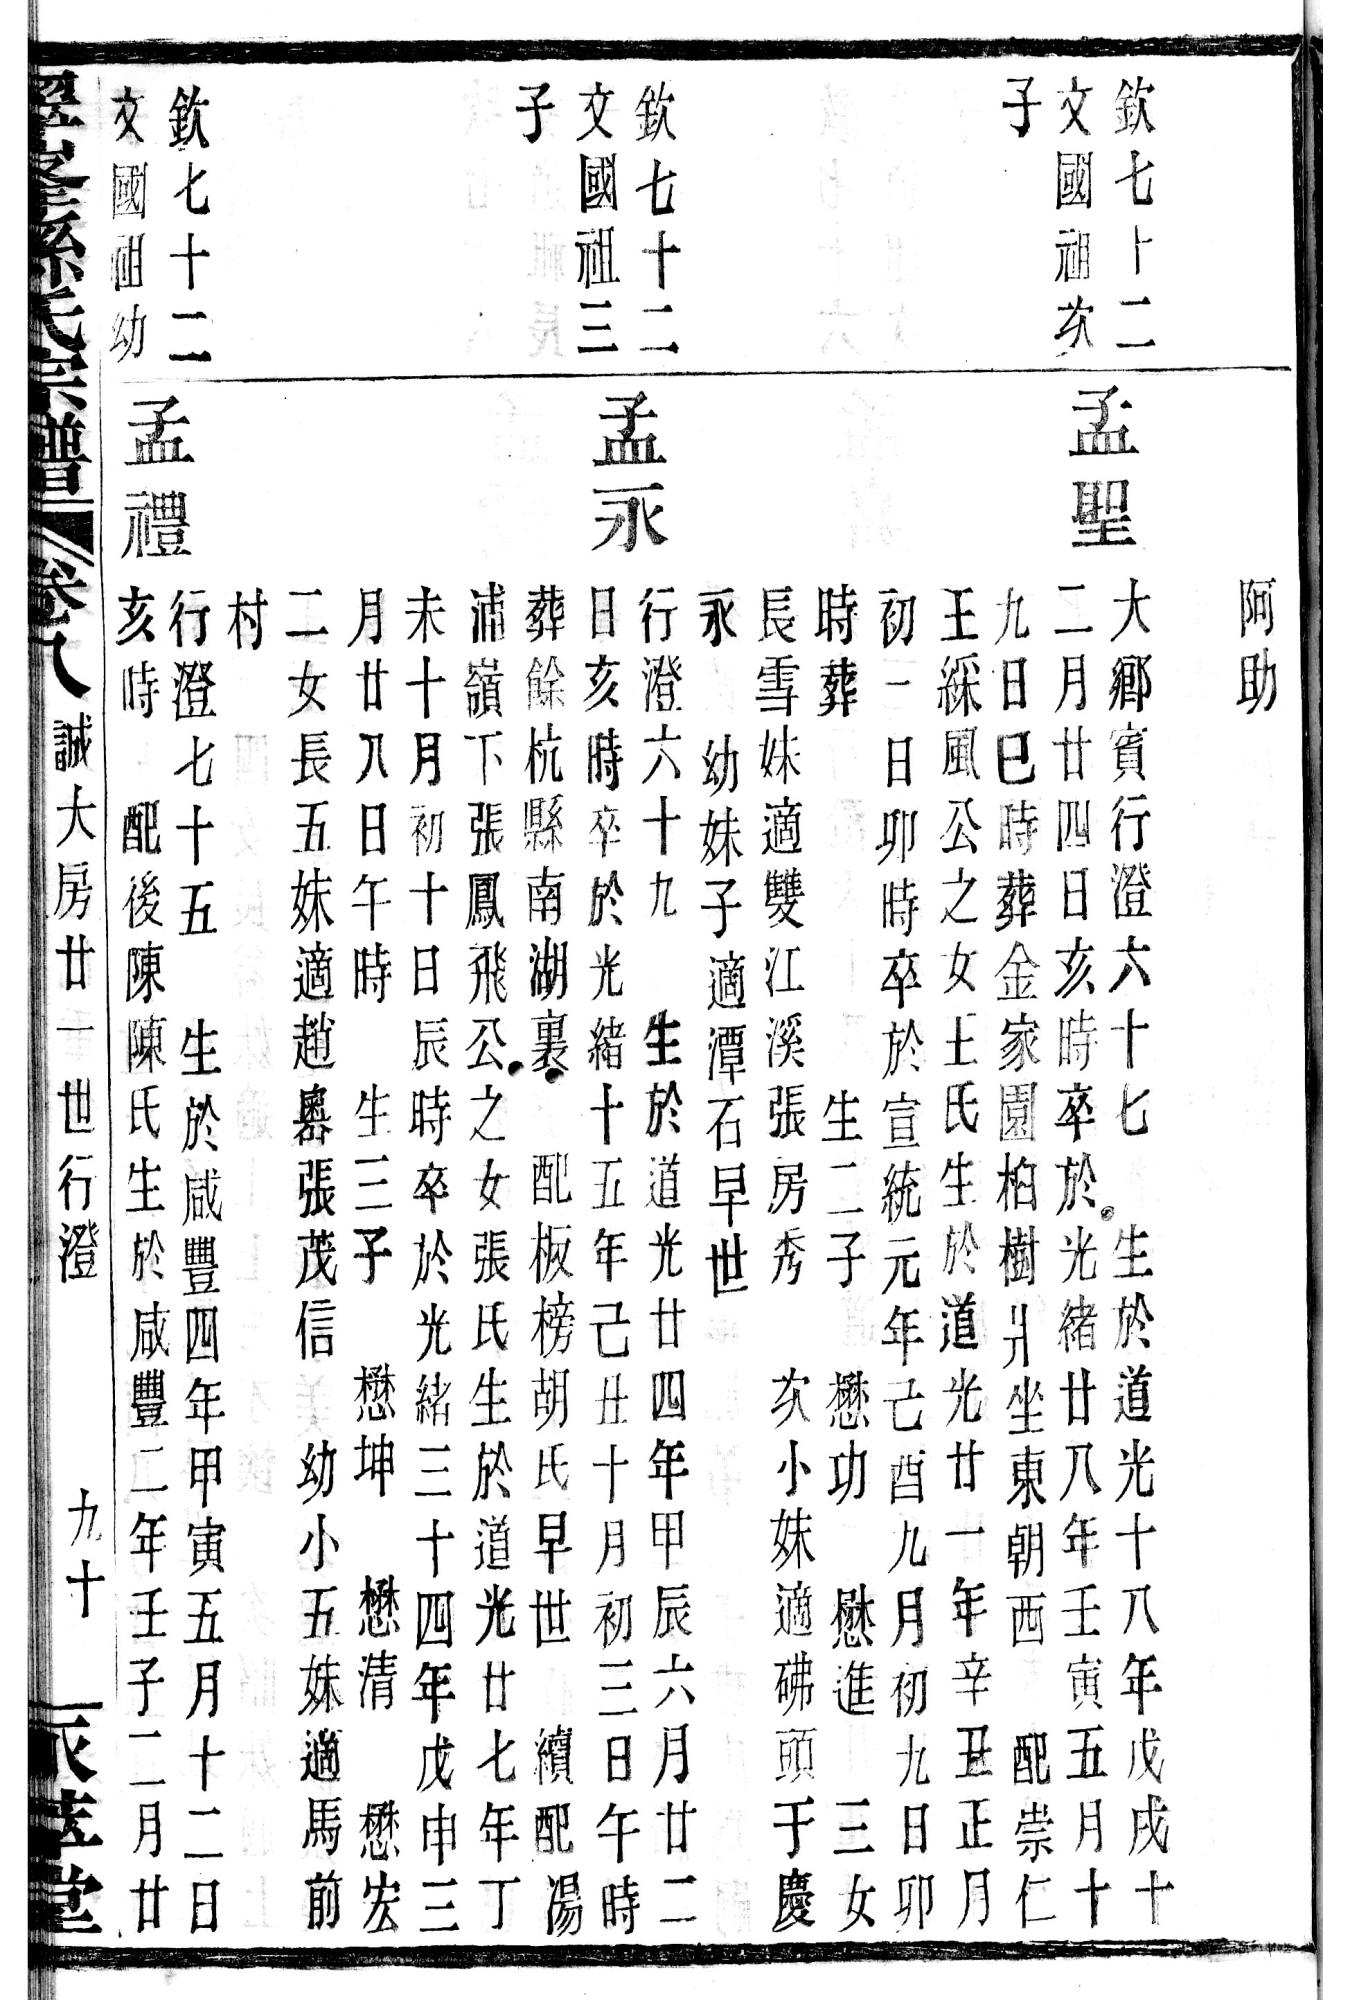 阿助
欽七十二
文國祖次
子
孟聖
大鄉賓行澄六十七 生於道光十八年戊戌十
二月廿四日亥時卒於光緒廿八年壬寅五月十
九日巳時葬金家園柏樹爿坐東朝西 配崇仁
王綵風公之女王氏生於道光廿一年辛丑正月
初一日卯時卒於宣統元年己酉九月初九日卯
時葬 生二子 懋功 懋進 三女
長雪妹適雙江溪張房秀 次小妹適砩頭于慶
永 幼妹子適潭石早世
欽七十二
文國祖三
子
孟永
行澄六十九 生於道光廿四年甲辰六月廿二
日亥時卒於光緒十五年己丑十月初三日午時
葬餘杭縣南湖裏 配板榜胡氏早世 續配湯
浦嶺下張鳳飛公之女張氏生於道光廿七年丁
未十月初十日辰時卒於光緒三十四年戊申三
月廿八日午時 生三子 懋坤 懋清 懋宏
二女長五妹適趙嶴張茂信 幼小五妹適馬前
村
欽七十二
文國祖幼
孟禮
行澄七十五 生於咸豐四年甲寅五月十二日
亥時 配後陳陳氏生於咸豐二年壬子二月廿
孫氏宗譜 卷八 誠大房廿一世行澄 九十 堂